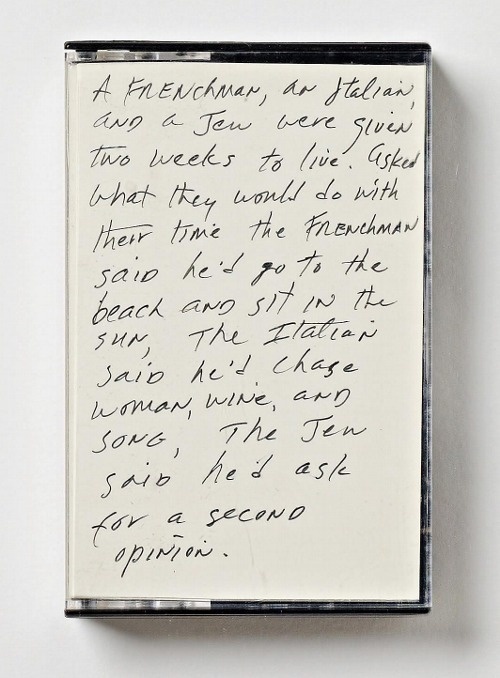 A FRENCHMAN, an Italian,
AND a Jew were given
two weeks to live. Asked
what they would do with
their time the FRENCHMAN
said he'd go to the
beach AND sit in the
sun, The Italian
said he'd chase
woman, wine, and
song, The Jew
said he'd ask
for a second
opinion.